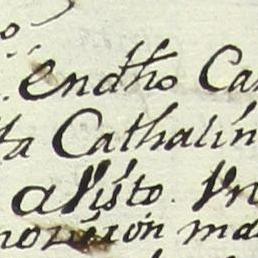 o
en dho Ca
ta Cathalin
a Visto. Vn
moricion ma